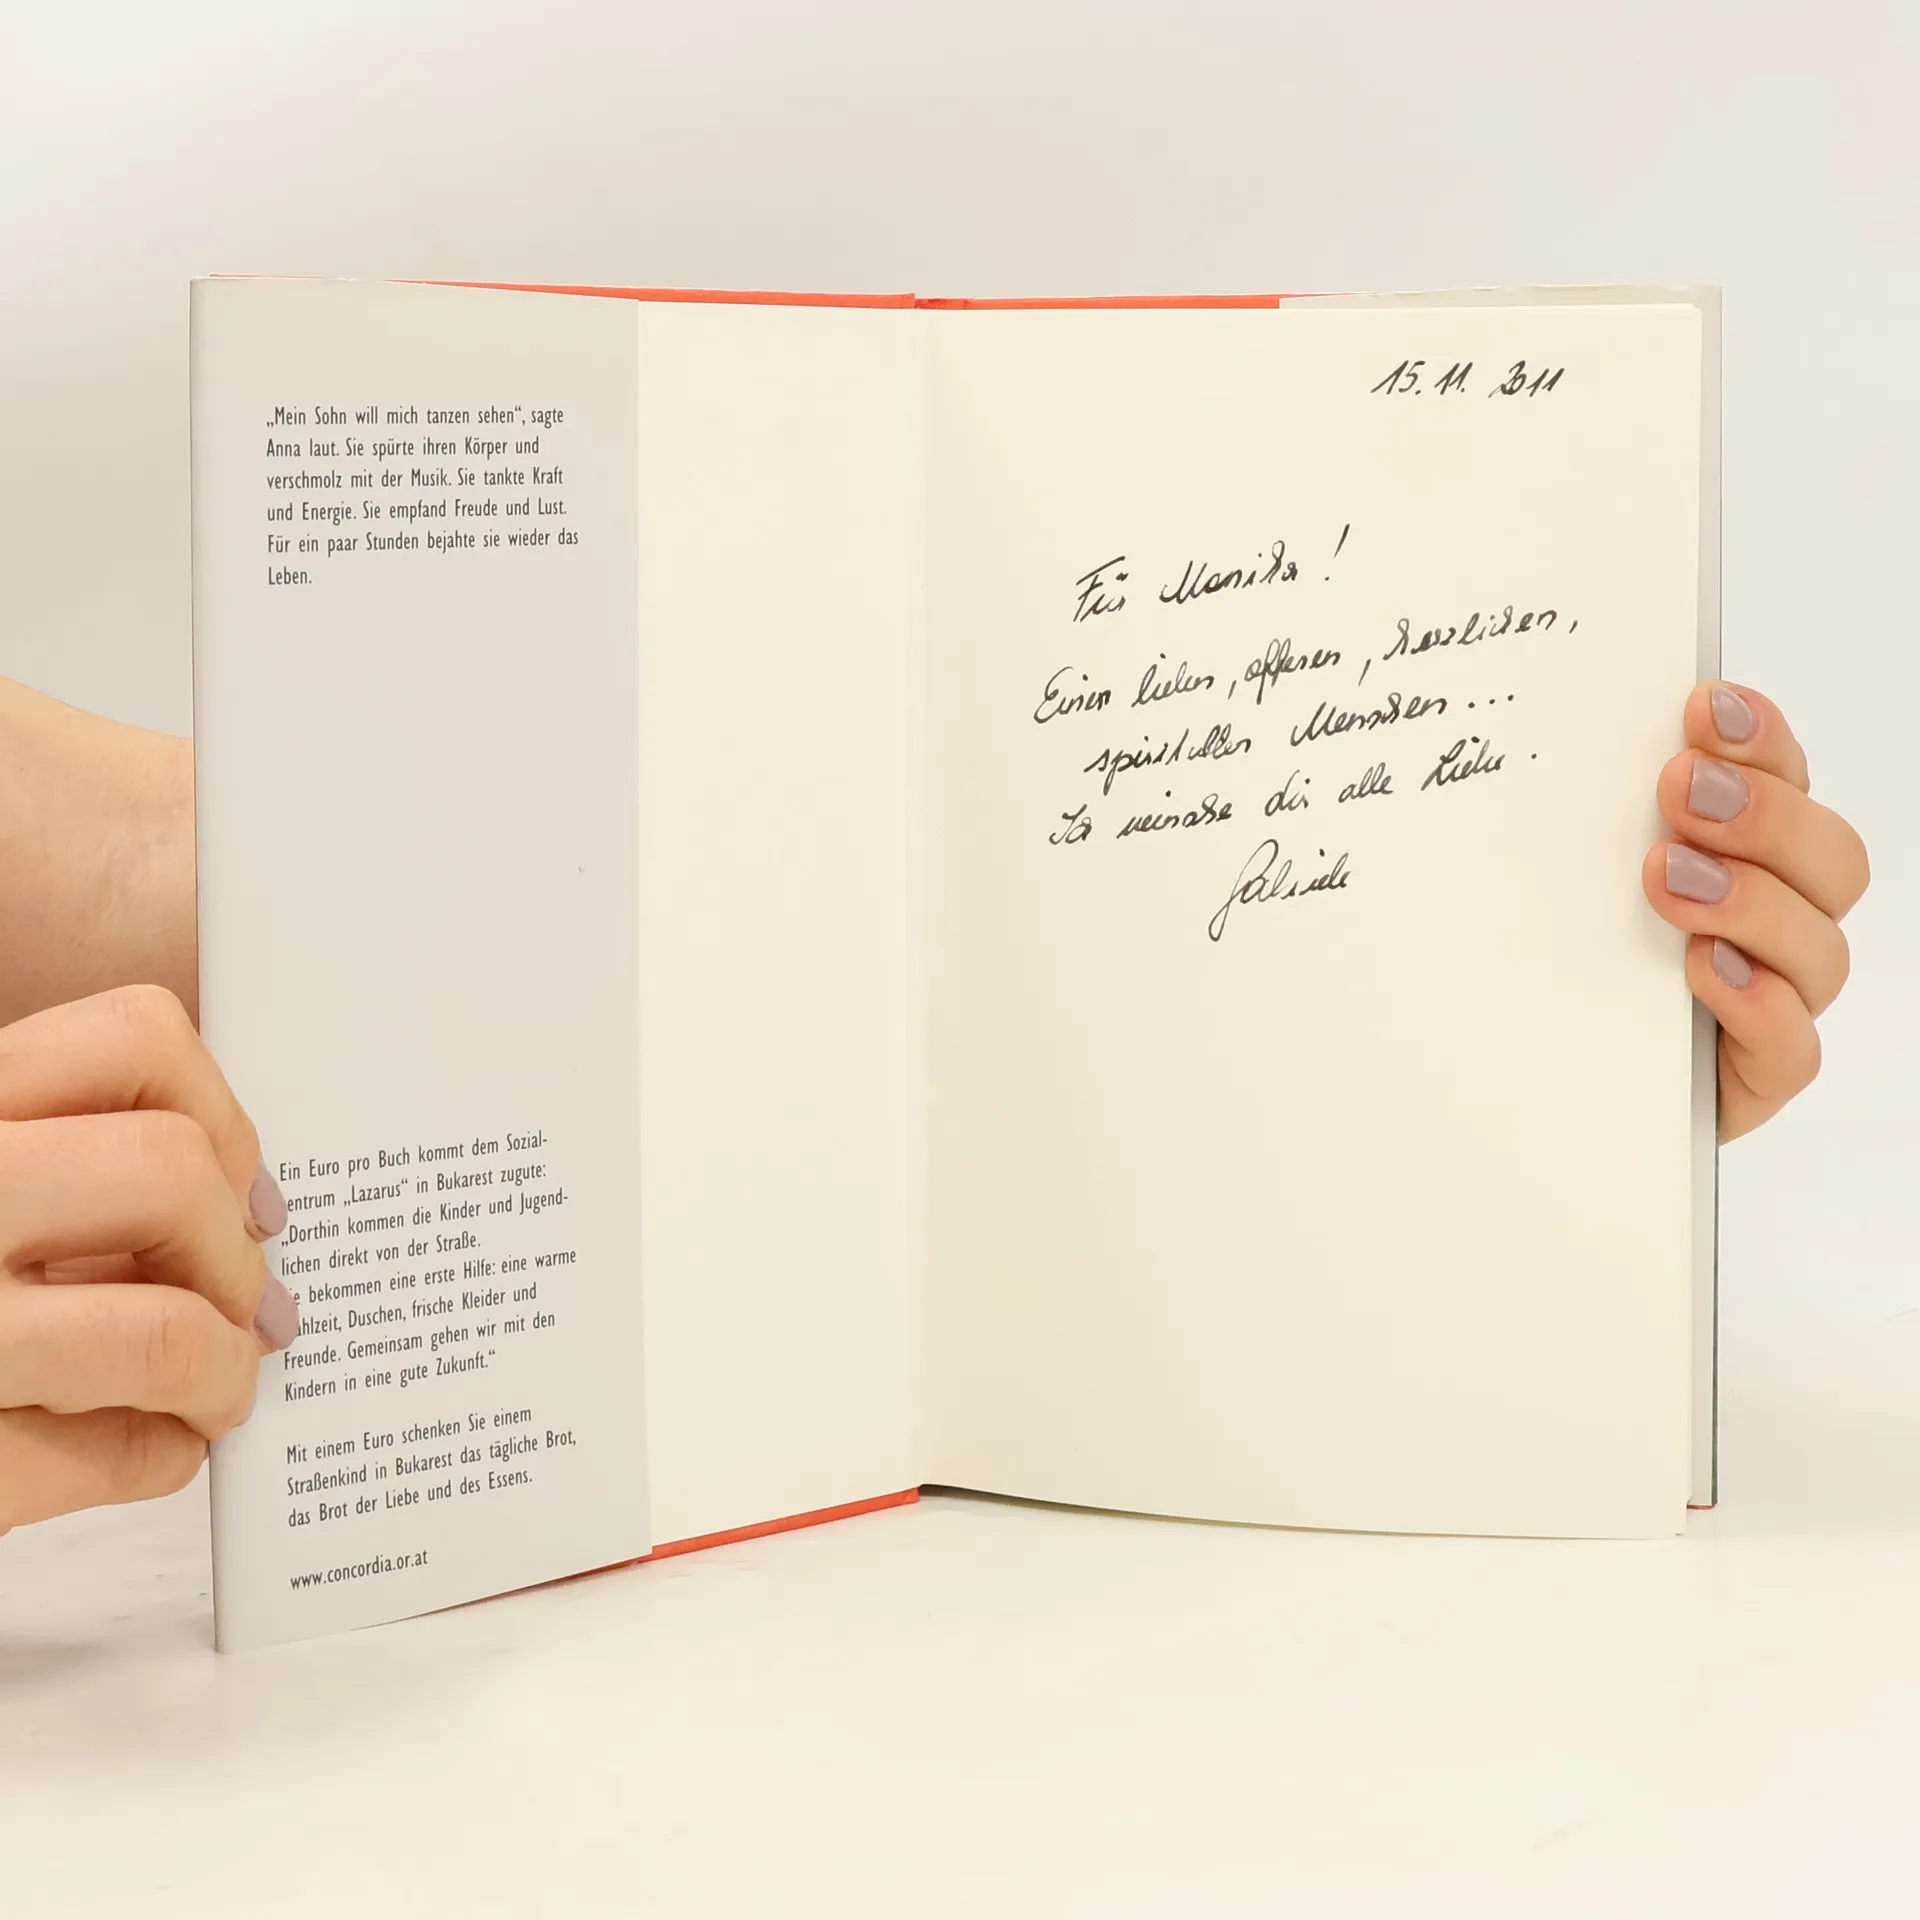 „Mein Sohn will mich tanzen sehen“, sagte
Anna laut. Sie spürte ihren Körper und
verschmolz mit der Musik. Sie tankte Kraft
und Energie. Sie empfand Freude und Lust.
Für ein paar Stunden bejahte sie wieder das
Leben.
Ein Euro pro Buch kommt dem Sozial-
entrum „Lazarus“ in Bukarest zugute:
„Dorthin kommen die Kinder und Jugend-
lichen direkt von der Straße.
e bekommen eine erste Hilfe: eine warme
hlzeit, Duschen, frische Kleider und
Freunde. Gemeinsam gehen wir mit den
Kindern in eine gute Zukunft.“
Mit einem Euro schenken Sie einem
Straßenkind in Bukarest das tägliche Brot,
das Brot der Liebe und des Essens.
www.concordia.or.at
15.11.2011
Für Monika!
Einen lieben, offenen, herzlichen,
spirituellen Menschen...
Ich wünsche dir alle Liebe.
Gabriele